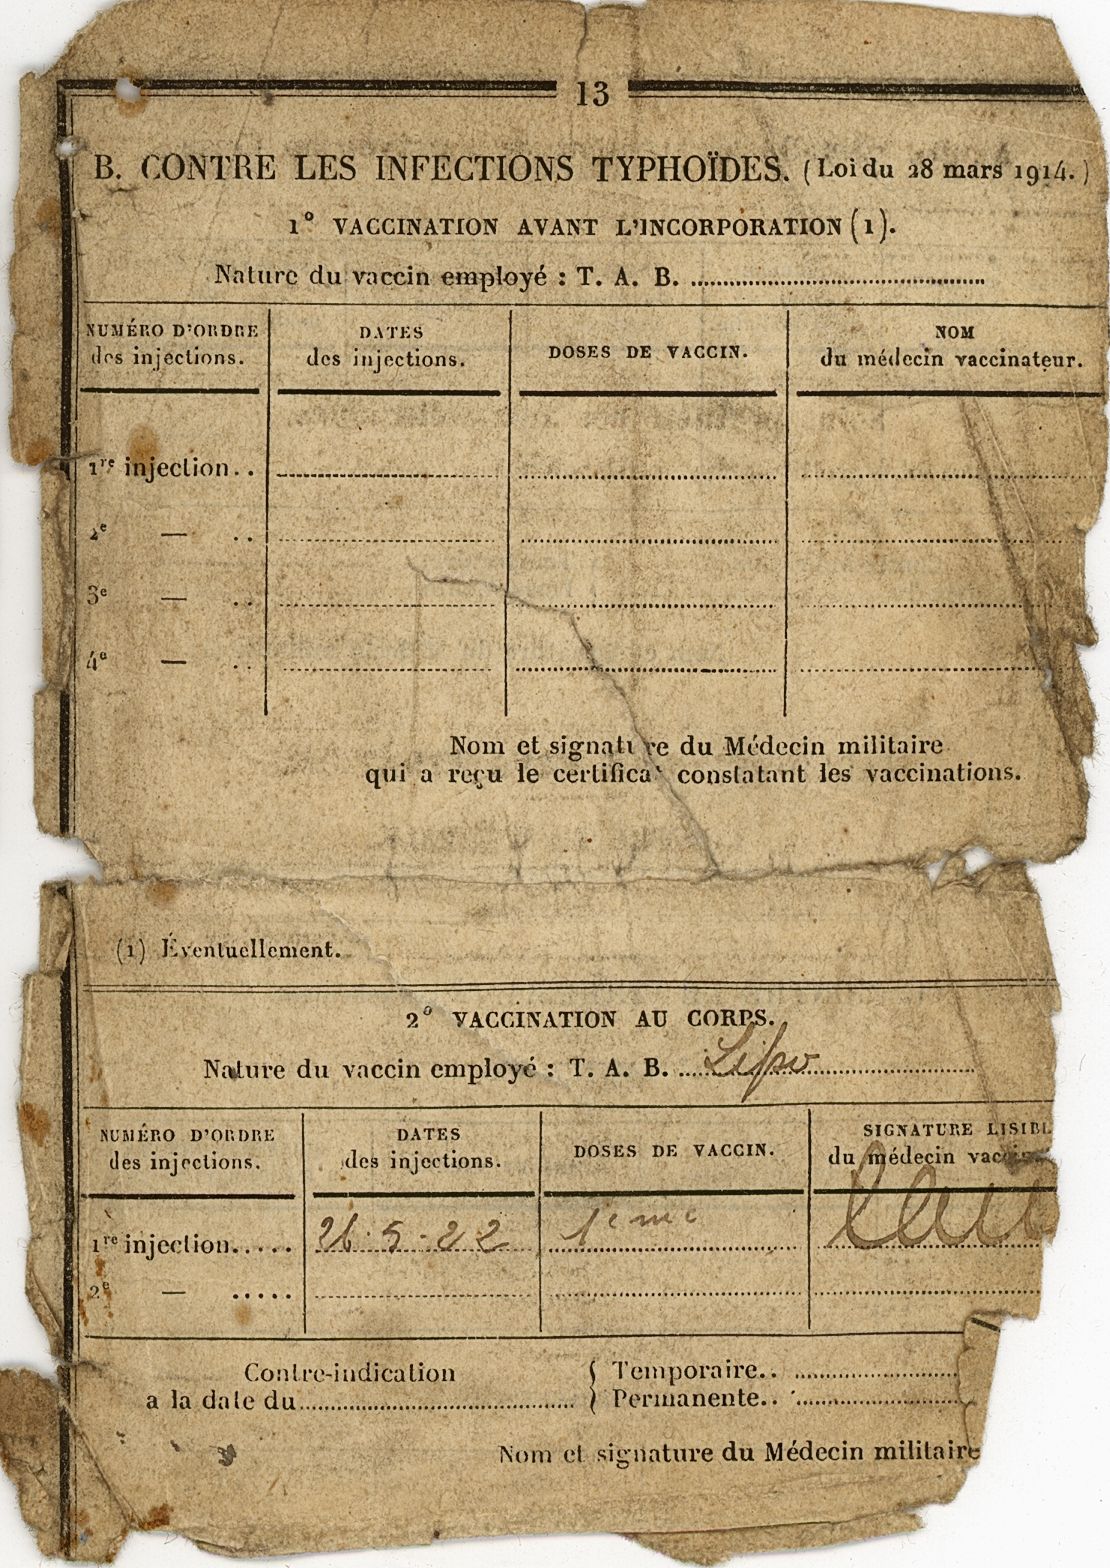 13
B. CONTRE LES INFECTIONS TYPHOÏDES. (Loi du 28 mars 1914.)
1° VACCINATION AVANT L'INCORPORATION (1).
Nature du vaccin employé : T. A. B.
NUMÉRO D'ORDRE des injections. DATES des injections. DOSES DE VACCIN. NOM du médecin vaccinateur.
1re injection..
2e — ..
3e — ..
4e — ..
Nom et signature du Médecin militaire
qui a reçu le certifica constatant les vaccinations.
(1) Éventuellement.
2° VACCINATION AU CORPS.
Nature du vaccin employé : T. A. B. Lipo
NUMÉRO D'ORDRE des injections. DATES des injections. DOSES DE VACCIN. SIGNATURE LISIBL du médecin vacc
1re injection..... 26-5-22 1eme
2e — .....
Contre-indication { Temporaire..
a la date du { Permanente..
Nom et signature du Médecin militaire